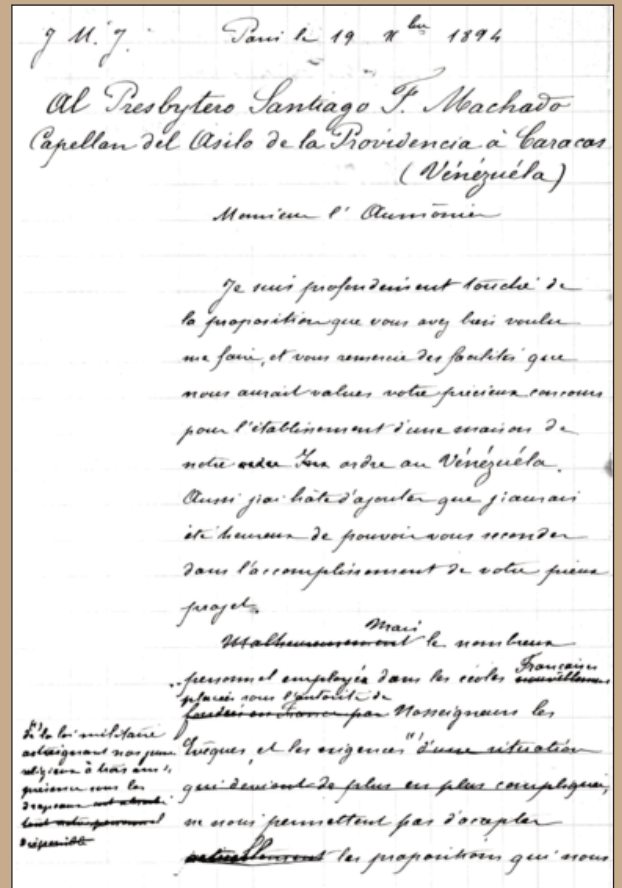 J M. J. Paris le 19 Xbre 1894
Al Presbytero Santiago F. Machado
Capellan del Asilo de la Providencia à Caracas
(Vénézuéla)
Monsieur l' Aumônier
Je suis profondément touché de
la proposition que vous avez bien voulu
me faire, et vous remercie des facilités que
nous aurait values votre précieux concours
pour l'établissement d'une maison de
notre ordre au Vénézuéla.
Aussi j'ai hâte d'ajouter que j'aurais
été heureux de pouvoir vous seconder
dans l'accomplissement de votre pieux
projet.
Mais
Malheureusement le nombreux
Françaises
personnel employée dans les écoles nouvellement
placées sous l'autorité de
fondées en France par Nosseigneurs les
Evêques, et les exigences (1) d'une situation
qui devient de plus en plus compliquée,
ne nous permettent pas d'accepter
actuellement les propositions qui nous
(1) la loi militaire
astreignant nos jeunes
religieux à trois ans de
présence sous les
drapeaux
tout notre personnel
disponible